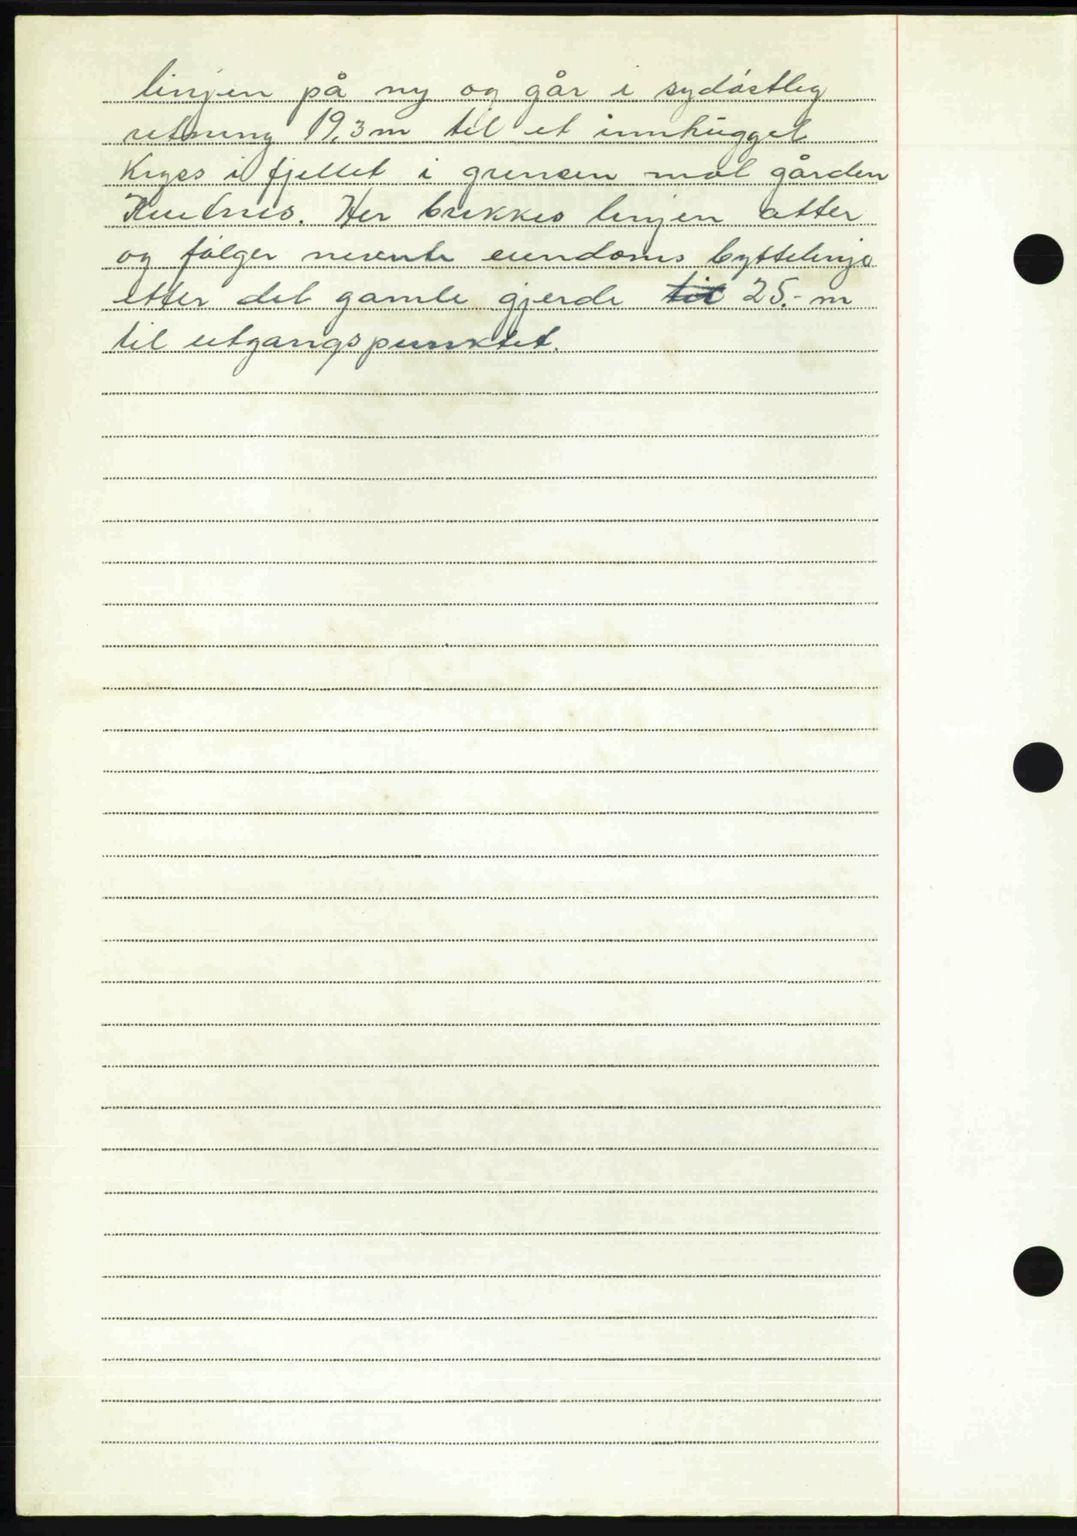 linjen på ny og går i sydøstleg
retning 19,3 m til et innhugget
Kryss i fjellet i grensen mot gården
Her brekkes linjen atter
og følger nevnte eiendoms byttelinje
etter det gamle gjerde til 25.- m
til utgangspunktet.